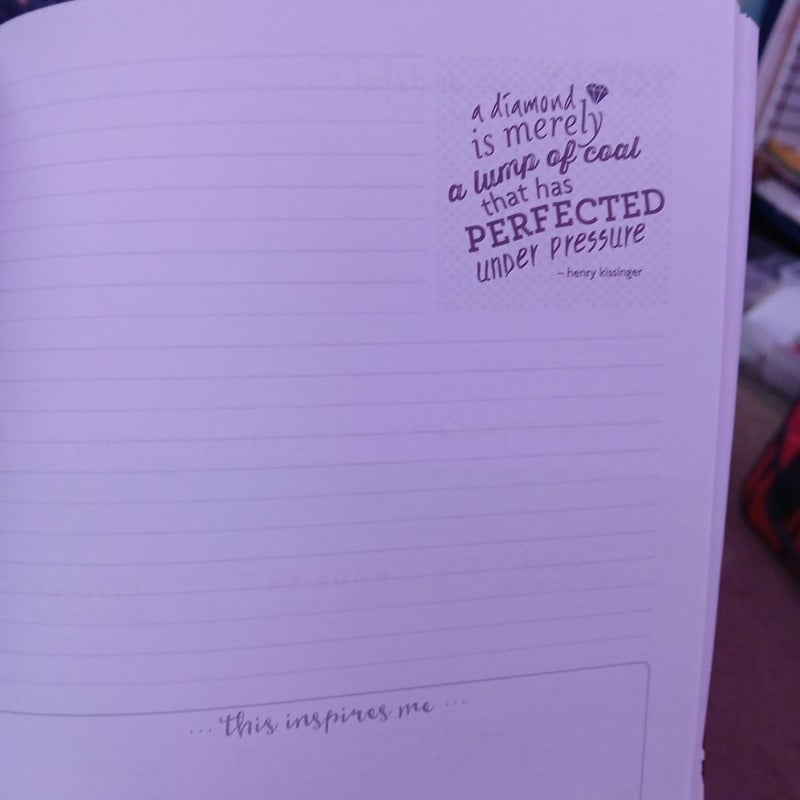 a diamond
is merely
a lump of coal
that has
PERFECTED
under pressure
– henry kissinger
... this inspires me ...